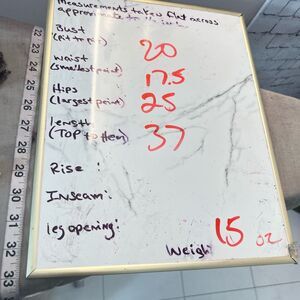 Measurements taken flat across
approximate to the
Bust
(pit to pit) 20
Waist
(smallest point) 17.5
Hips :
(largest point) 25
length
(TOP to Hem) 37
Rise :
Inseam :
leg opening :
Weigh 15 oz
22
23
24
25
26
27
28
29
30
31
32
33